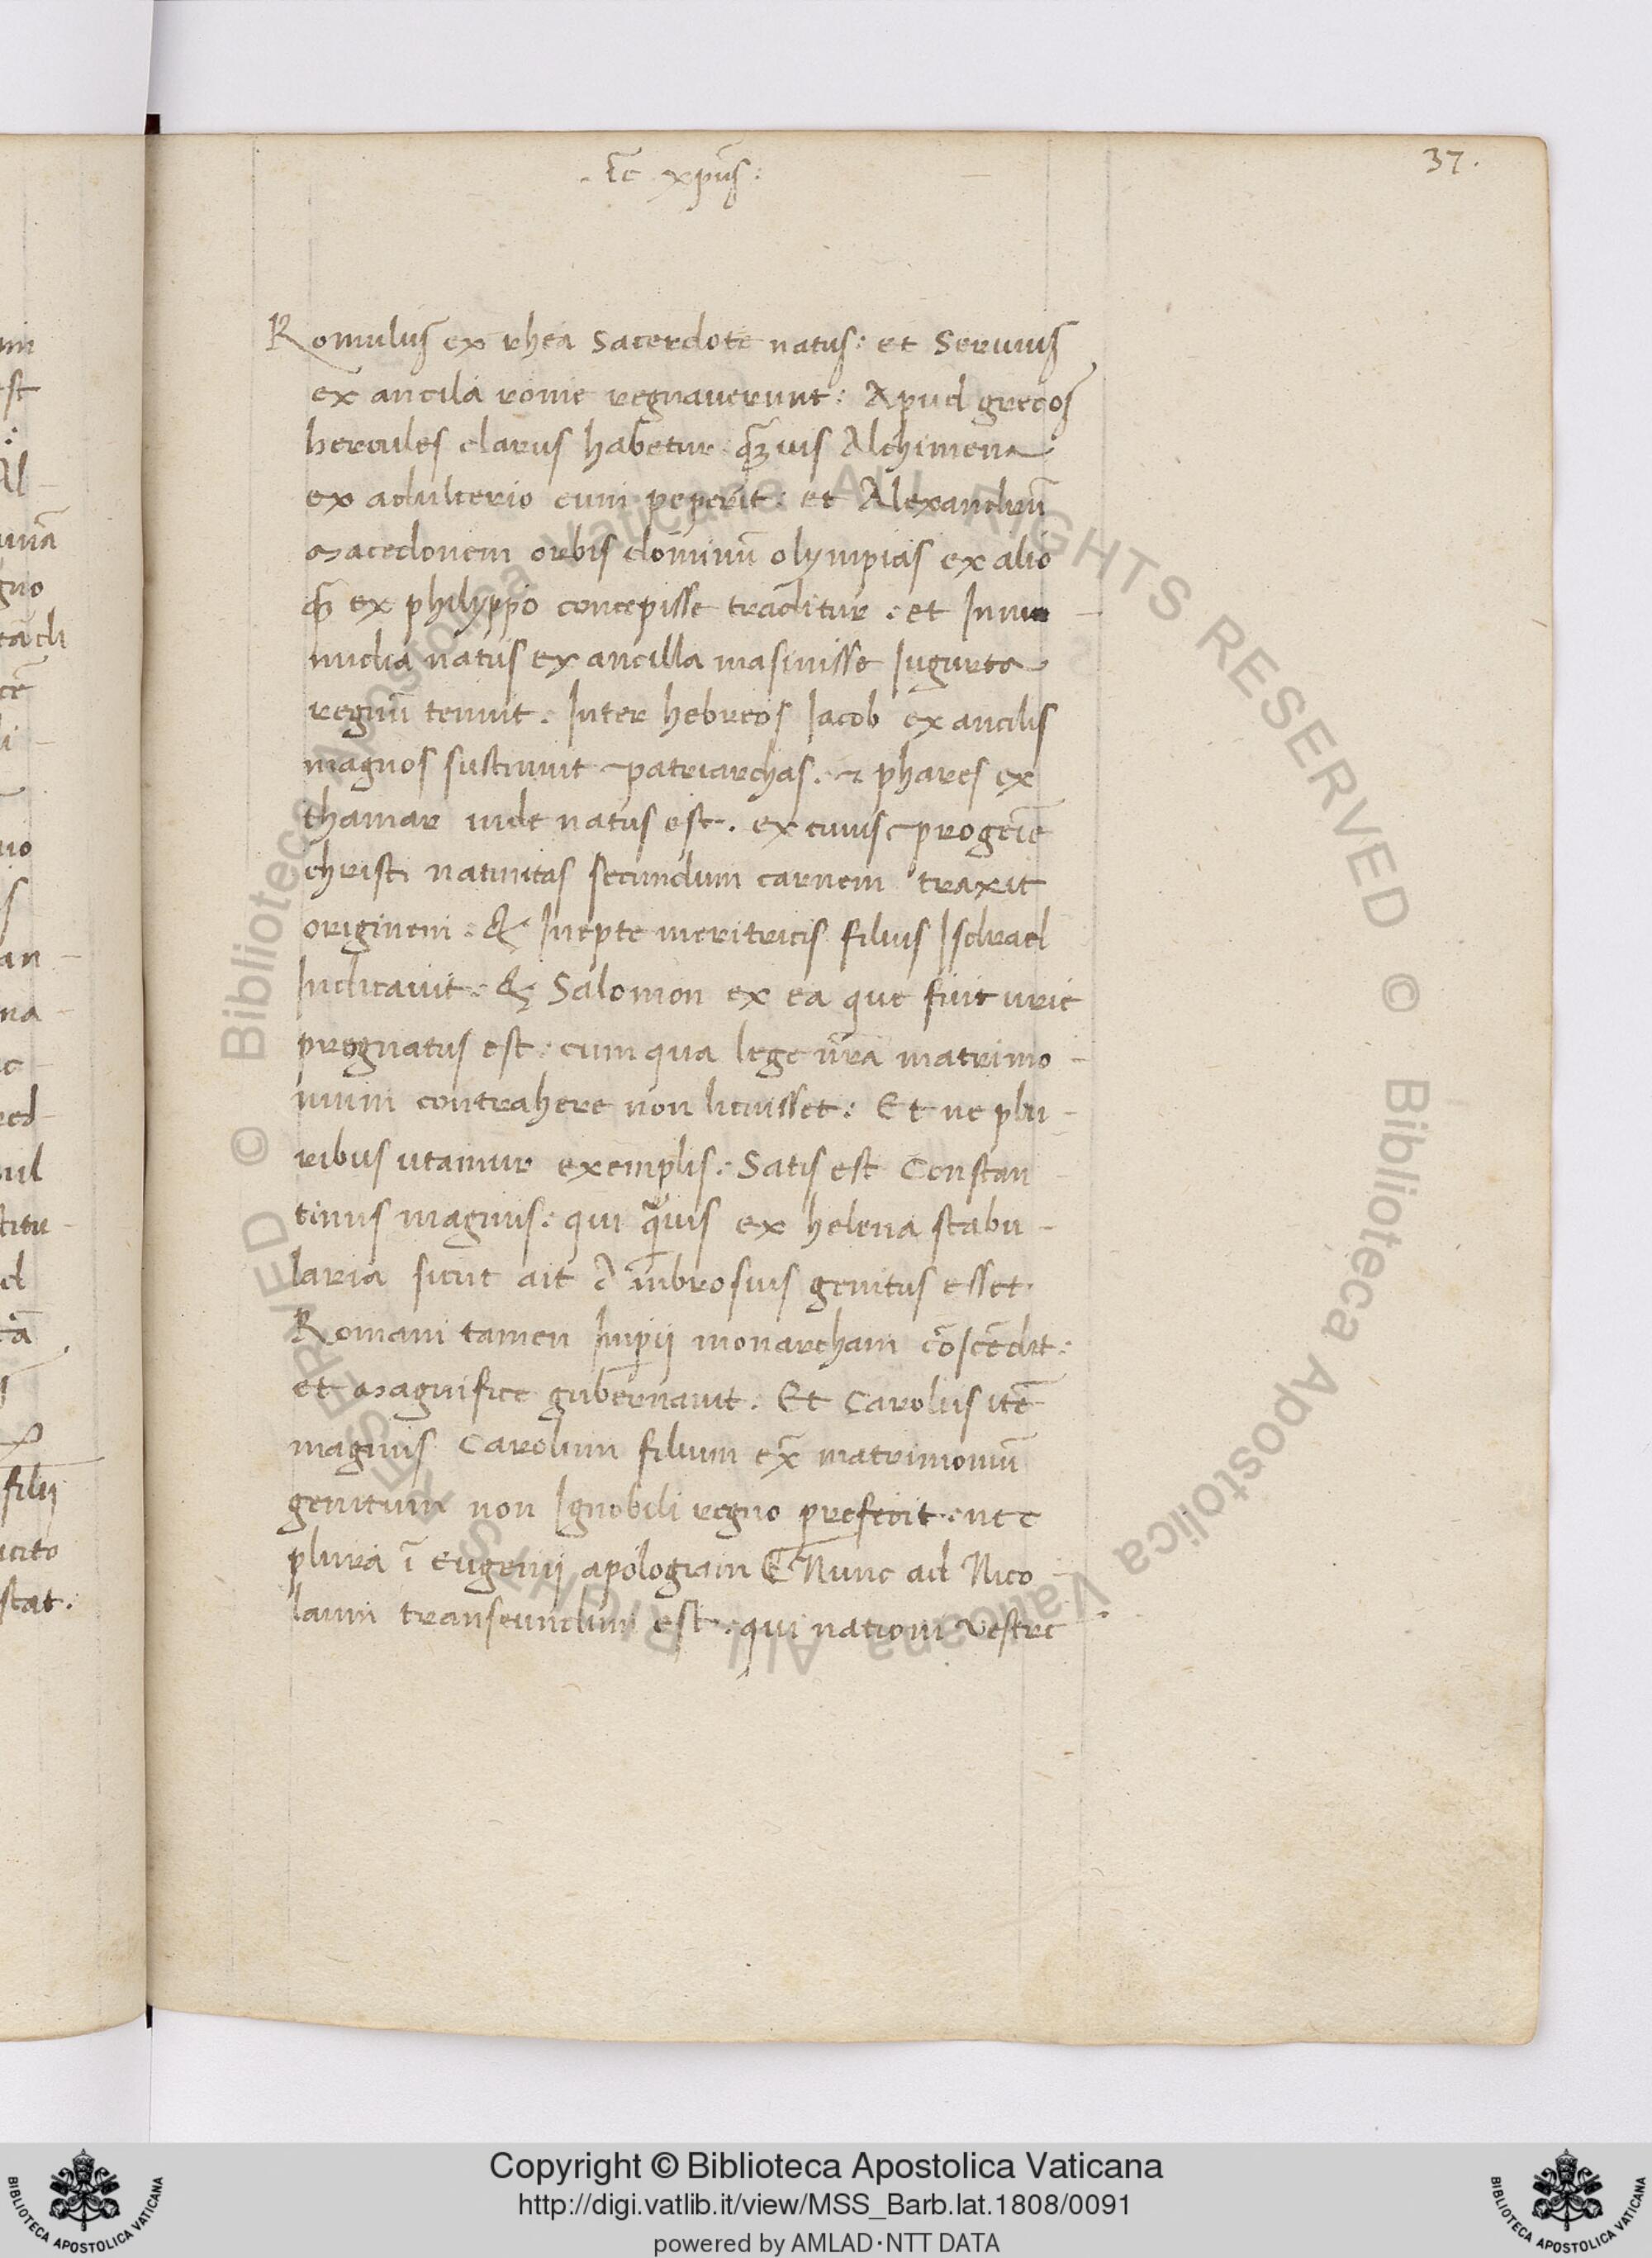 37.
. īc xpūs:
Romulus ex rhea Sacerdote natus: et Seruius
ex ancila rome regnauerunt: Apud grecos
hercules clarus habetur. qȝuis Alchimena
ex adulterio eum peperit: et Alexandrū
Macedonem orbis dominū olympias ex alio
qȝ ex philyppo concepisse traditur: et Innu-
midia natus ex ancilla masinisse Iugurta
regnū tenuit. Inter hebreos Iacob ex ancilis
magnos sustinuit patriarchas. & phares ex
thamar iude natus est. ex cuius progeīe
christi natiuitas secundum carnem traxit
originem. & Inepte meritricis filius Isdrael
Iudicauit. & Salomon ex ea que fuit urie
prognatus est: cum qua lege nr̄a matrimo-
nium contrahere non licuisset: Et ne plu-
ribus utamur exemplis: Satis est Constan
tinus magnus: qui quis ex helena stabu-
laria sicut ait Ambrosius genitus esset.
Romani tamen Imperij monarcham cōscēdit:
et Magnifice gubernauit. Et Carolus itē
magnus Carolum filium ex̄ matrimoniū
genitum non Ignobili regno prefecit. ne
plura ī Eugenij apologiam Nunc ad Nico-
laum transeundum est. qui nationi Vestre
mi
est
Al-
unā
gno
tādi
cē
uio
an-
na-
c-
red-
uil
titu-
d
tā
filij
icito
stat.
© Biblioteca Apostolica Vaticana ALL RIGHTS RESERVED © Biblioteca Apostolica Vaticana ALL RIGHTS RESERVED
Copyright © Biblioteca Apostolica Vaticana
http://digi.vatlib.it/view/MSS_Barb.lat.1808/0091
powered by AMLAD·NTT DATA
BIBLIOTECA APOSTOLICA VATICANA
BIBLIOTECA APOSTOLICA VATICANA